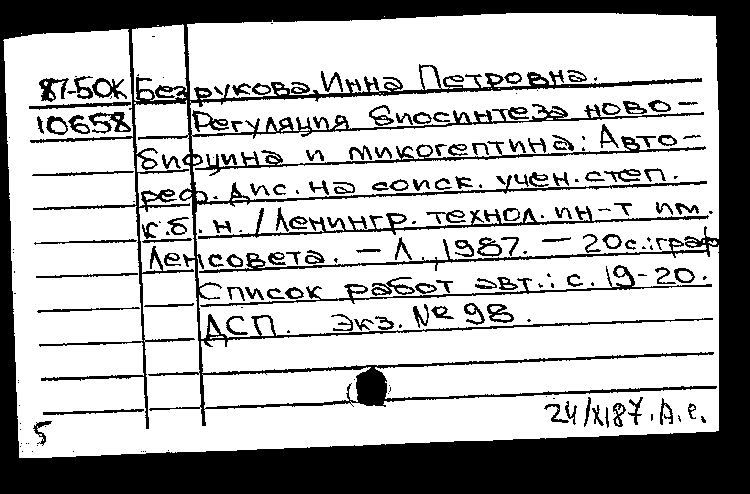 87-50К Безрукова, Инна Петровна.
10658 Регуляция биосинтеза ново-
бифцина и микогептина: Авто-
реф. дис. на соиск. учен. степ.
к.б.н. / Ленингр. технол. ин-т им.
Ленсовета. - Л., 1987. - 20с.: граф
Список работ авт.: с. 19-20.
ДСП. Экз. № 98.
24/XI87. А.е.
5